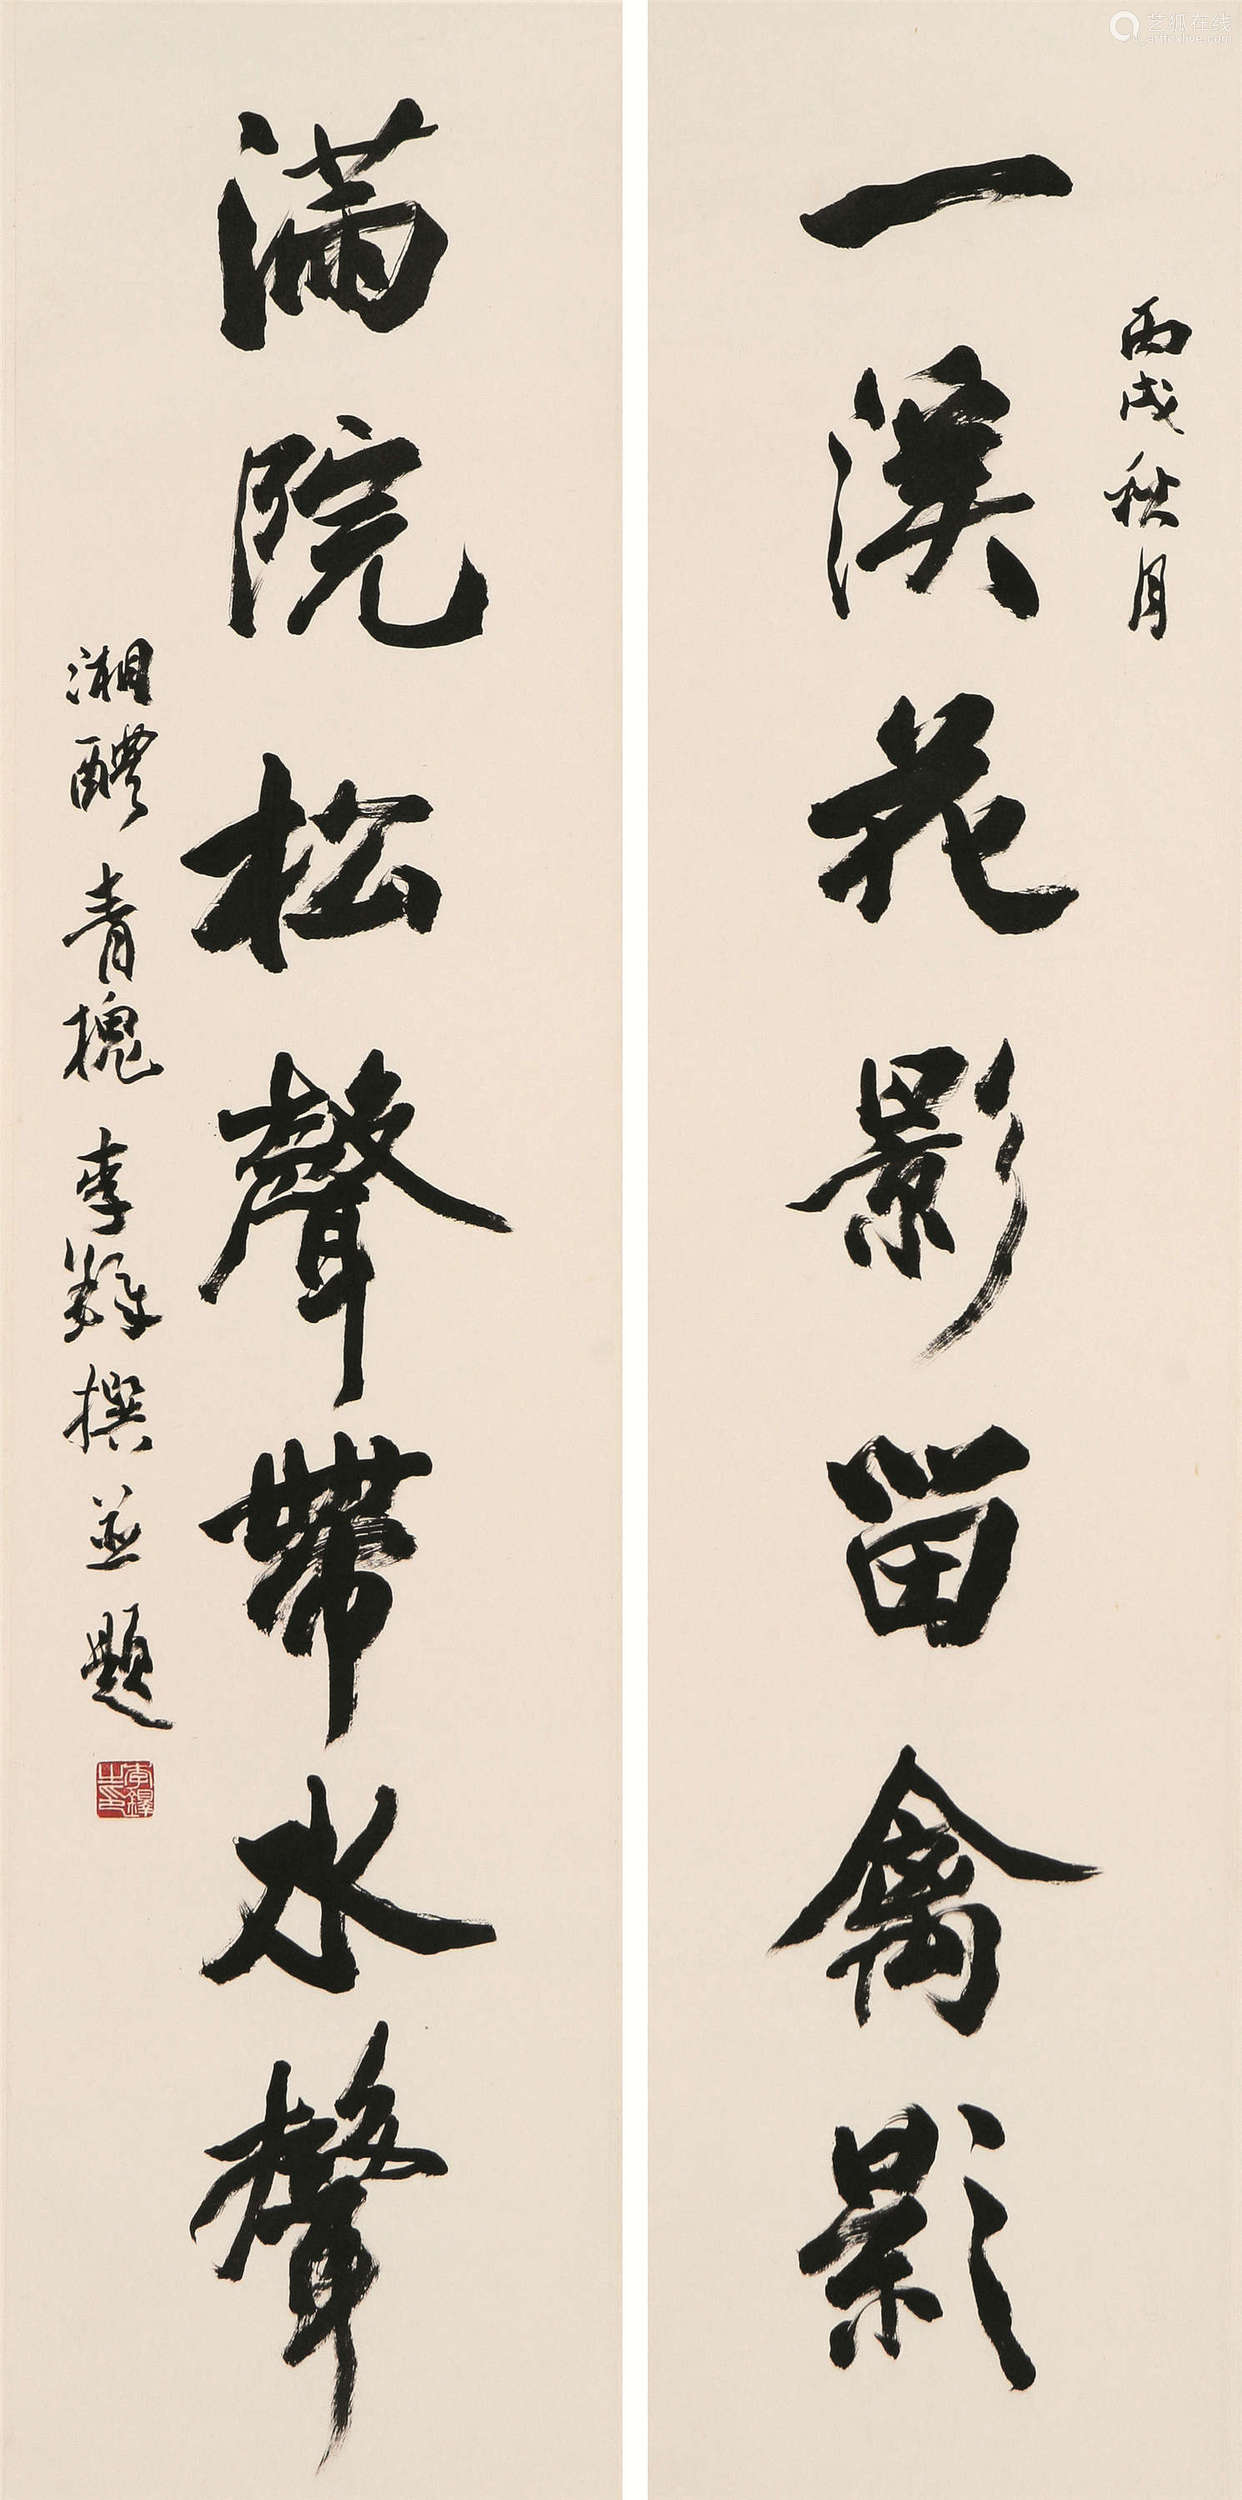 丙戌秋月
一溪花影留禽影
满院松聲帶水聲
湘醴青槐李鐸撰並題
李鐸之印
艺狐在线
artfoxlive.com